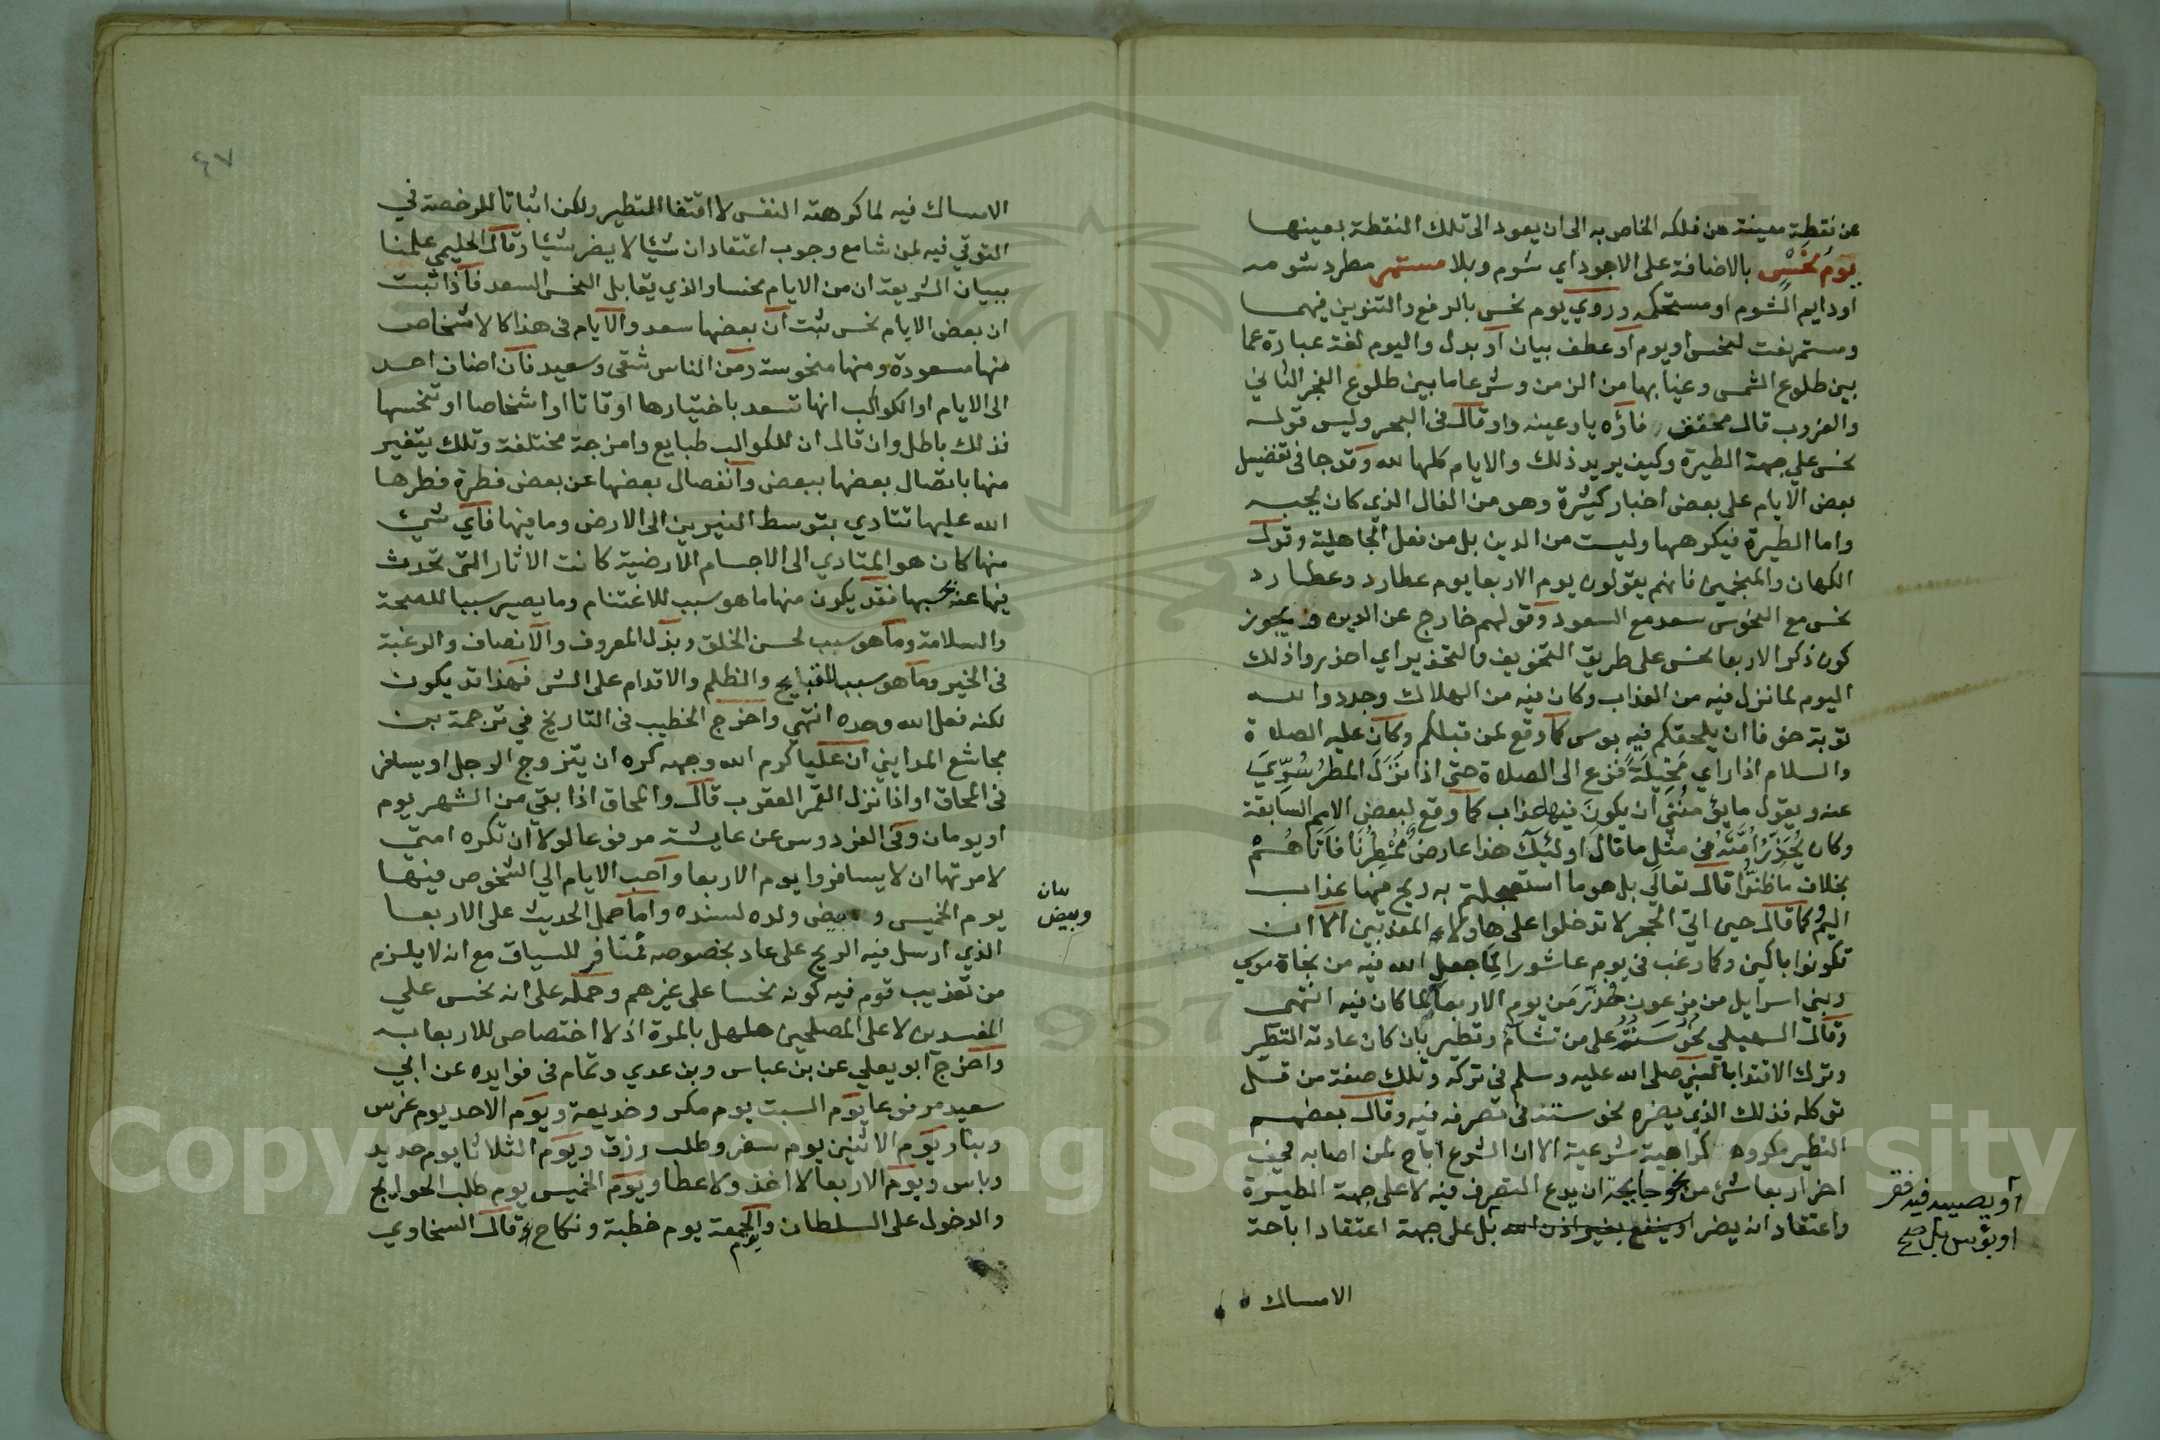 عن نقطة معينة من فلكه الخاص به الى ان يعود الى تلك النقطة بعينها
يوم نحس بالاضافة على الاجود اي شوم وبلا مستمر مطرد شومه
او دايم الشوم او مستحكمه وروي يوم نحس بالرفع والتنوين فيهما
ومستمر نعت لنحس او يوم او عطف بيان او بدل واليوم لغة عبارة عما
بين طلوع الشمس وغيابها من الزمن وشرعا ما بين طلوع الفجر الثاني
والغروب قال محقق فاؤه يا وعينه واو قال في البحر وليس قوله
نحس على جهة الطيرة وكيف يريد ذلك والايام كلها لله وقد جا في تفضيل
بعض الايام على بعض اخبار كثيرة وهو من الفال الذي كان يحبه
واما الطيرة فيكرهها وليست من الدين بل من فعل الجاهلية وقول
الكهان والمنجمين فانهم يقولون يوم الاربعا يوم عطارد وعطارد
نحس مع النحوس سعد مع السعود وقولهم خارج عن الدين ويجوز
كون ذكر الاربعا نحس على طريق التخويف والتحذير اي احذروا ذلك
اليوم لما نزل فيه من العذاب وكان فيه من الهلاك وجددوا لله
توبة خوفا ان يلحقكم فيه بوس كما وقع لمن قبلكم وكان عليه الصلاة
والسلام اذا راي مخيلة فزع الى الصلاة حتى اذا نزل المطر سري
عنه ويقول ما يؤمنني ان يكون فيها عذاب كما وقع لبعض الامم السابقة
وكان يحذر امته من مثل ما قال اولئك هذا عارض ممطرنا فاتاهم
بخلاف ما ظنوا قال تعالى بل هو ما استعجلتم به ريح فيها عذاب
اليم وكما قال حين اتي الحجر لا تدخلوا على هاولاء المعذبين الا ان
تكونوا باكين وكما رغب في يوم عاشورا لما جعل الله فيه من نجاة موسي
وبني اسرايل من فرعون حذر من يوم الاربعا لما كان فيه انتهى
وقال السهيلي نحوسته على من تشام وتطير بان كان عادته التطير
وترك الاقتدا بالنبي صلى الله عليه وسلم في تركه وتلك صفة من قل
توكله فذلك الذي يضره نحوسته في تصرفه فيه وقال بعضهم
التطير مكروه كراهية شرعية الا ان الشرع اباح لمن اصابه في
اخر اربعا شئ من نحو جايحة ان يدع التصرف فيه لا على جهة الطيرة
واعتقاد انه يضر او ينفع بغير اذن الله بل على جهة اعتقاد اباحة
او يصيبه فيه فقر
او بؤس بل صح
الامساك
٤٧
الامساك فيه لما كرهته النفس لا اقتفا للتطير ولكن اثباتا للرخصة في
التوقي فيه لمن شا مع وجوب اعتقاد ان شيا لا يضر شيا وقال الحليمي علمنا
ببيان الشريعة ان من الايام نحسا والذي يقابل النحس السعد فاذا ثبت
ان بعض الايام نحس ثبت ان بعضها سعد والايام في هذا كالاشخاص
منها مسعودة ومنها منحوسة ومن الناس شقى وسعيد فان اضاف احد
الى الايام او الكواكب انها تسعد باختيارها اوقاتا او اشخاصا او تنحسها
فذلك باطل وان قال ان للكواكب طبايع وامزجة مختلفة وتلك يتغير
منها باتصال بعضها ببعض وانفصال بعضها عن بعض فطرة فطرها
الله عليها تتادي بتوسط النيرين الى الارض وما فيها فاي شي
منها كان هو المتادي الى الاجسام الارضية كانت الاثار التي تحدث
فيها عنه بحسبها فقد يكون منها ما هو سبب للاغتنام وما يصير سببا للصحة
والسلامة وما هو سبب لحسن الخلق وبذل المعروف والانصاف والرغبة
في الخير وما هو سبب للقبايح والظلم والاقدام على الشر فهذا قد يكون
لكنه فعل الله وحده انتهي واخرج الخطيب في التاريخ في ترجمة بن
مجاشع المدايني ان عليا كرم الله وجهه كره ان يتزوج الرجل او يسافر
في المحاق او اذا نزل القمر العقرب قال والمحاق اذا بقي من الشهر يوم
او يومان وفي الفردوس عن عايشة مرفوعا لولا ان تكره امتي
لامرتها ان لا يسافروا يوم الاربعا واحب الايام الي الشخوص فيها
يوم الخميس وبيض ولده لسنده واما حمل الحديث على الاربعا
بيان
وبيض
الذي ارسل فيه الريح على عاد بخصوصه فمنافر للسياق مع انه لا يلزم
من تعذيب قوم فيه كونه نحسا على غيرهم وحمله على انه نحس على
المفسدين لا على المصلحين هلهل بالمرة اذ لا اختصاص للاربعا به
واخرج ابو يعلي عن بن عباس وبن عدي وتمام في فوايده عن ابي
سعيد مرفوعا يوم السبت يوم مكر وخديعة ويوم الاحد يوم غرس
وبنا ويوم الاثنين يوم سفر وطلب رزق ويوم الثلاثا يوم حديد
وباس ويوم الاربعا لا اخذ ولا عطا ويوم الخميس يوم طلب الحوايج
والدخول على السلطان ويوم الجمعة يوم خطبة ونكاح قال السخاوي